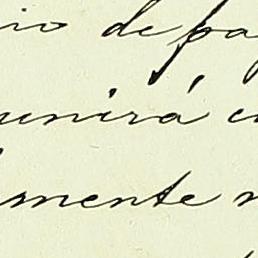 io de pa
unirá c
mente n